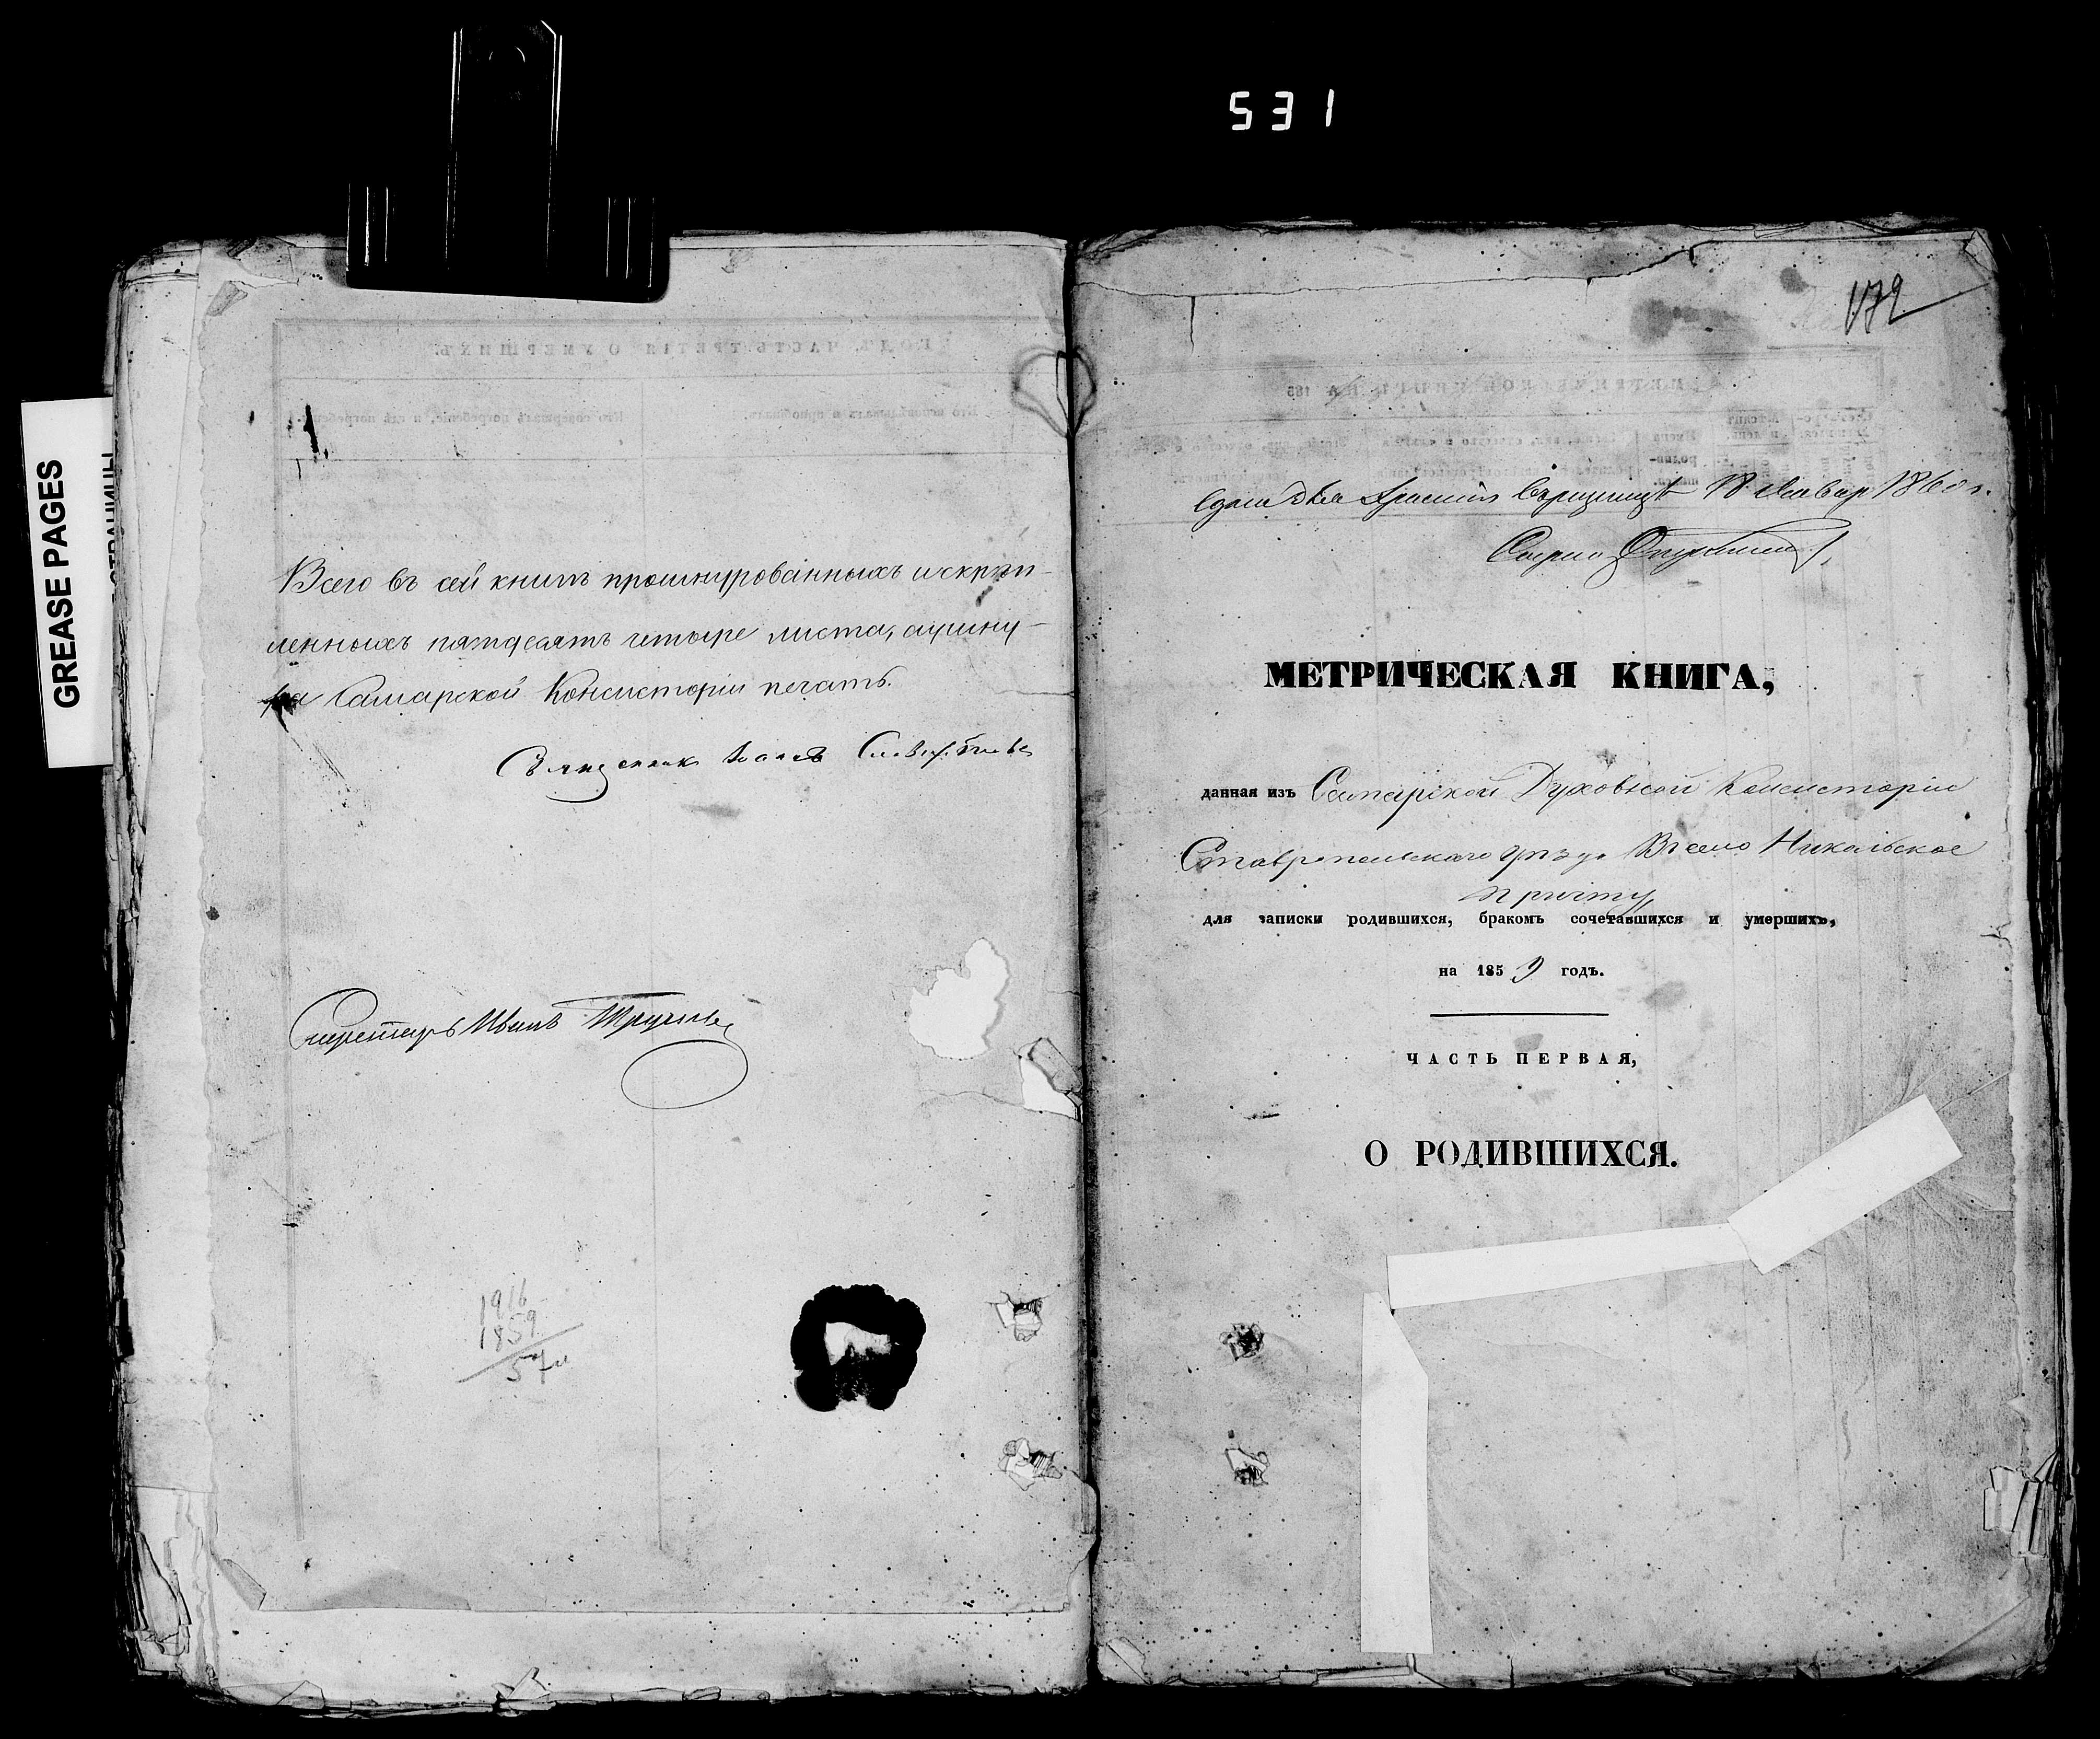 531
GREASE PAGES
Всего въ сей книгѣ прошнурованныхъ и скрѣп-
ленныхъ пятдесятъ четыре листа, аушну-
ра Самарской Консисторіи печать.
Священник Іоаннъ
Секретарь Иванъ
1916
1859
57
172
18 Январ 1860 г.
МЕТРИЧЕСКАЯ КНИГА,
данная изъ Самарской Духовной Консисторіи
Ставропольскаго уѣзда В село Никольское
причту
для записки родившихся, бракомъ сочетавшихся и умершихъ,
на 1859 годъ.
ЧАСТЬ ПЕРВАЯ,
О РОДИВШИХСЯ.